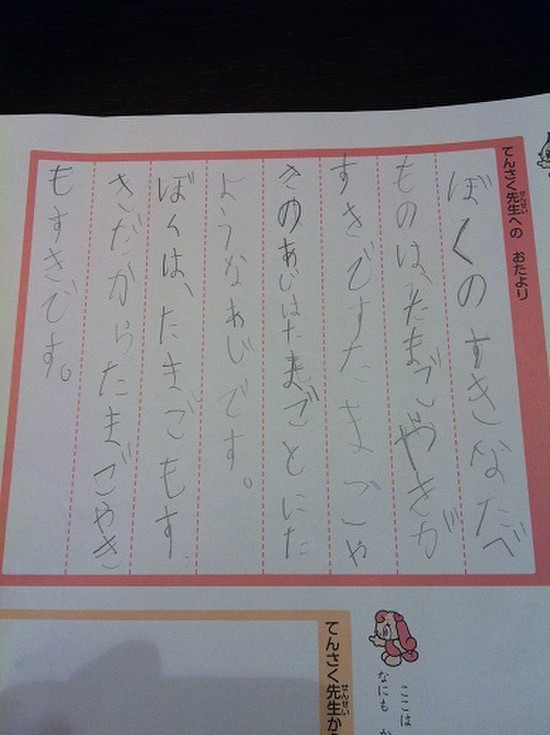 てんさく先生への おたより
せんせい
ぼくのすきなたべ
ものは、たまごやきが
すきですたまごや
きのあじはたまごとにた
ようなあじです。
ぼくは、たまごもす
きだからたまごやき
もすきです。
てんさく先生か
せんせい
ここは
なにも か